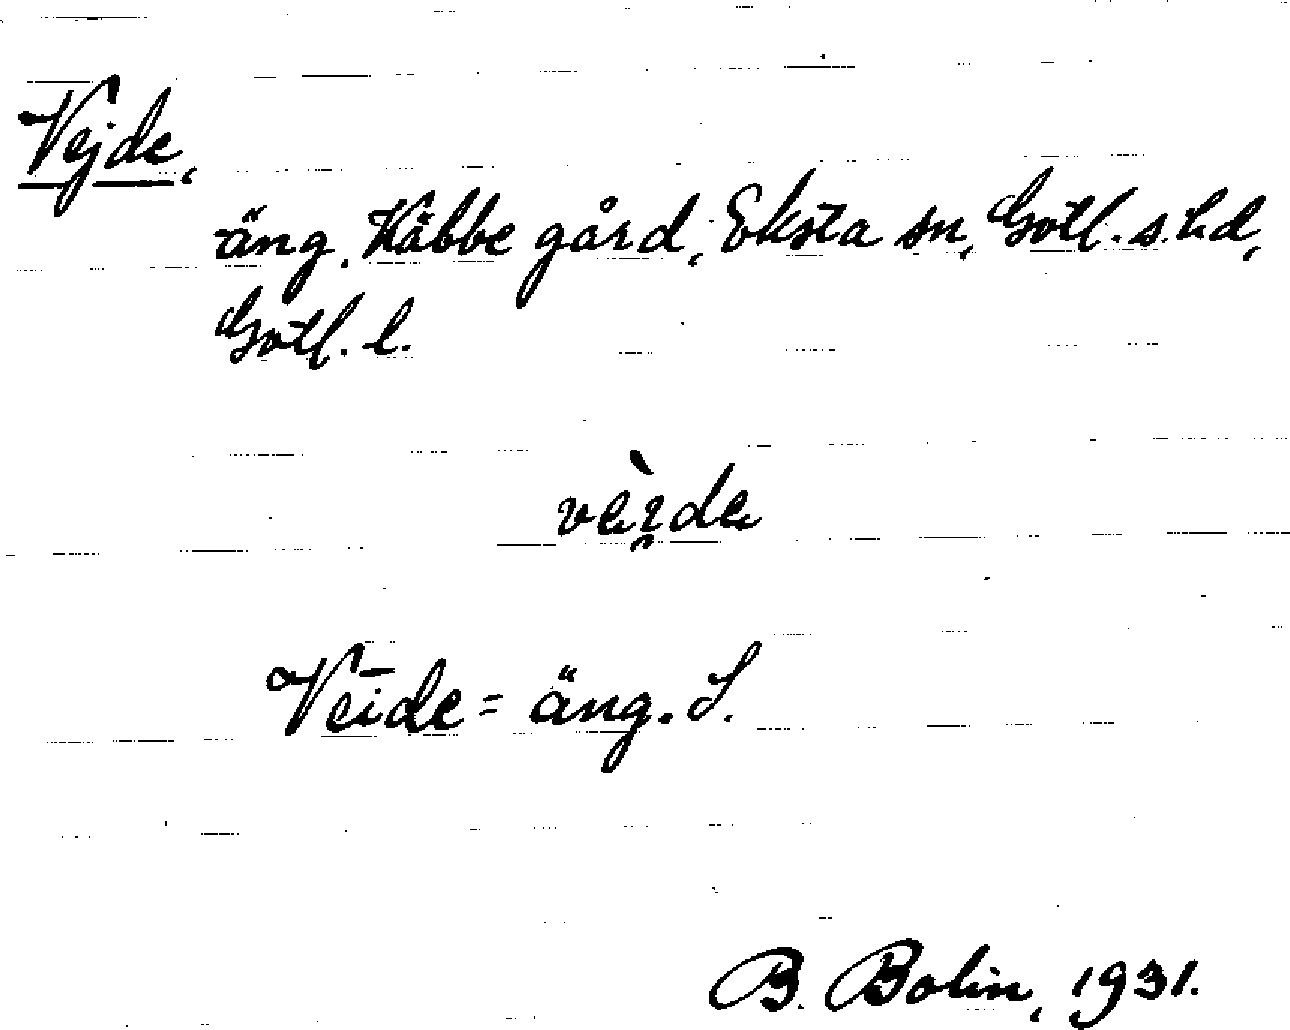 Vejde,
äng, Käbbe gård, Eksta sn, Gotl. s. hd,
Gotl. l.
Veide = äng. S.
B. Bolin, 1931.